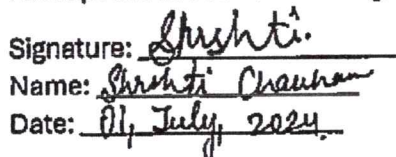 Signature: Shrshti.
Name: Shrshti Chauhan
Date: 01, July, 2024.